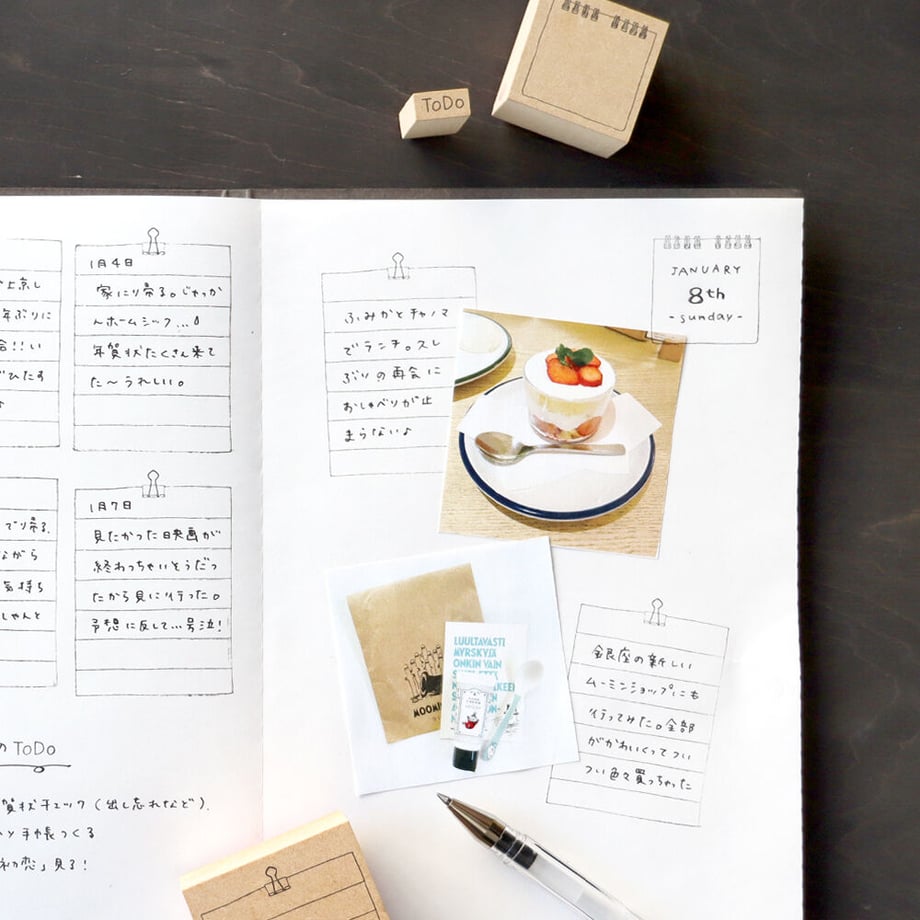 ToDo
上京し
年ぶりに
!!い
ひたす
1月4日
家にり帰る。じゃっか
んホームシック...
年賀状たくさん来て
た〜うれしい。
で帰る。
ながら
気持ち
しゃんと
1月7日
見たかった映画が
終わっちゃいそうだっ
たから見に行った。
予想に反して...号泣!
の ToDo
賀状チェック(出し忘れなど)
手帳つくる
初恋」見る!
JANUARY
8th
-sunday-
ふみかとチャノマ
でランチ。久し
ぶりの再会に
おしゃべりが止
まらない♪
LUULTAVASTI
MYRSKYJÄ
ONKIN VAIN
MOOMI
銀座の新しい
ムーミンショップにも
行ってみた。全部
がかわいくってつい
つい色々買っちゃった